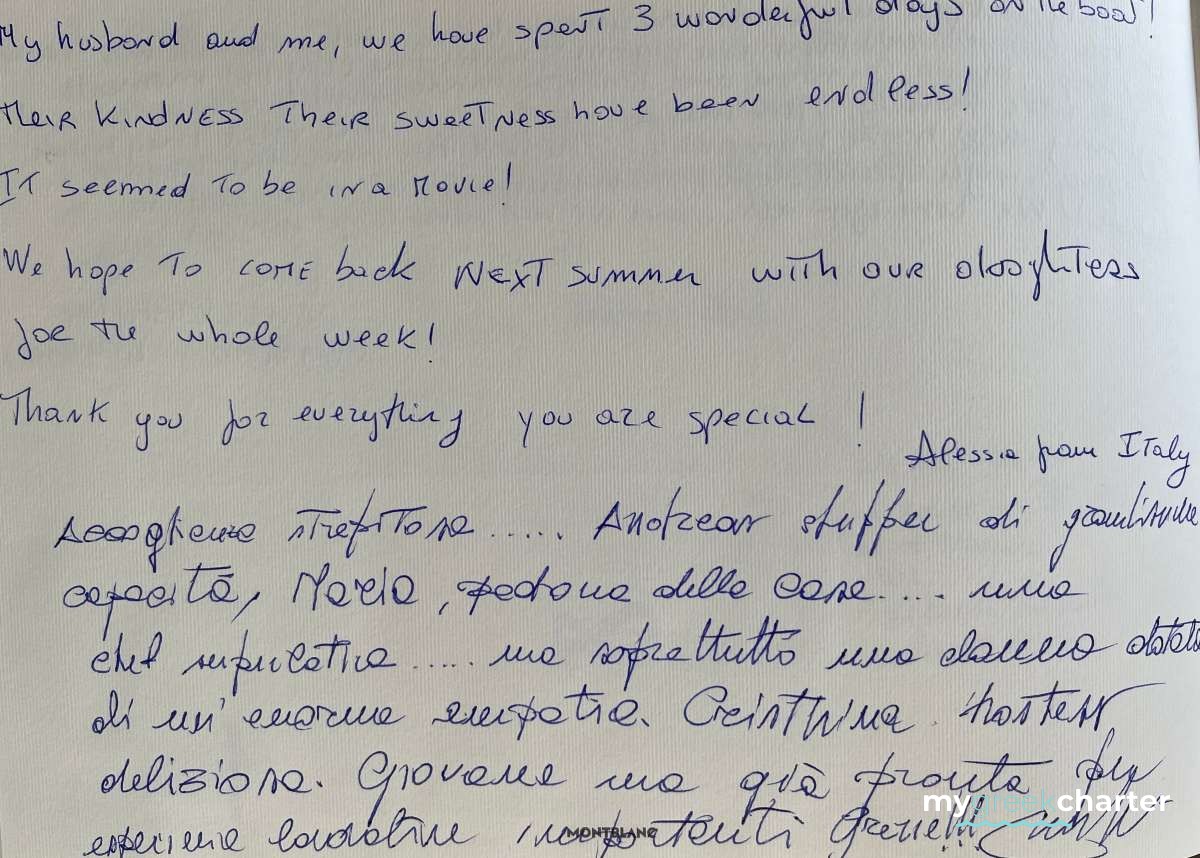 My husband and me, we have spent 3 wonderful days on the boat!
Their kindness their sweetness have been endless!
It seemed to be in a movie!
We hope to come back next summer with our doughters
for the whole week!
Thank you for everything you are special!
Alessia from Italy
Accoglienza strepitosa ..... Andrear skipper di grandissime
capacità, Maria, padrona della casa .... una
chef ..... ma soprattutto una donna dotata
di un' enorme empatia. Cristhina hostess
deliziosa. Giovane ma già pronta per
esperienze lavorative importanti Grazie!!!
mygreekcharter
MONTBLANC